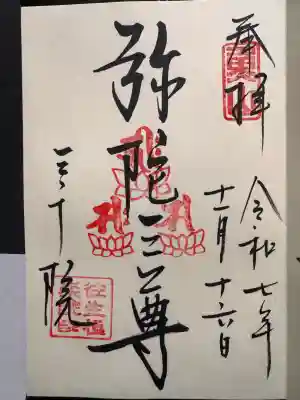 奉拝
令和七年
十一月十六日
弥陀三尊
三千院
往生極